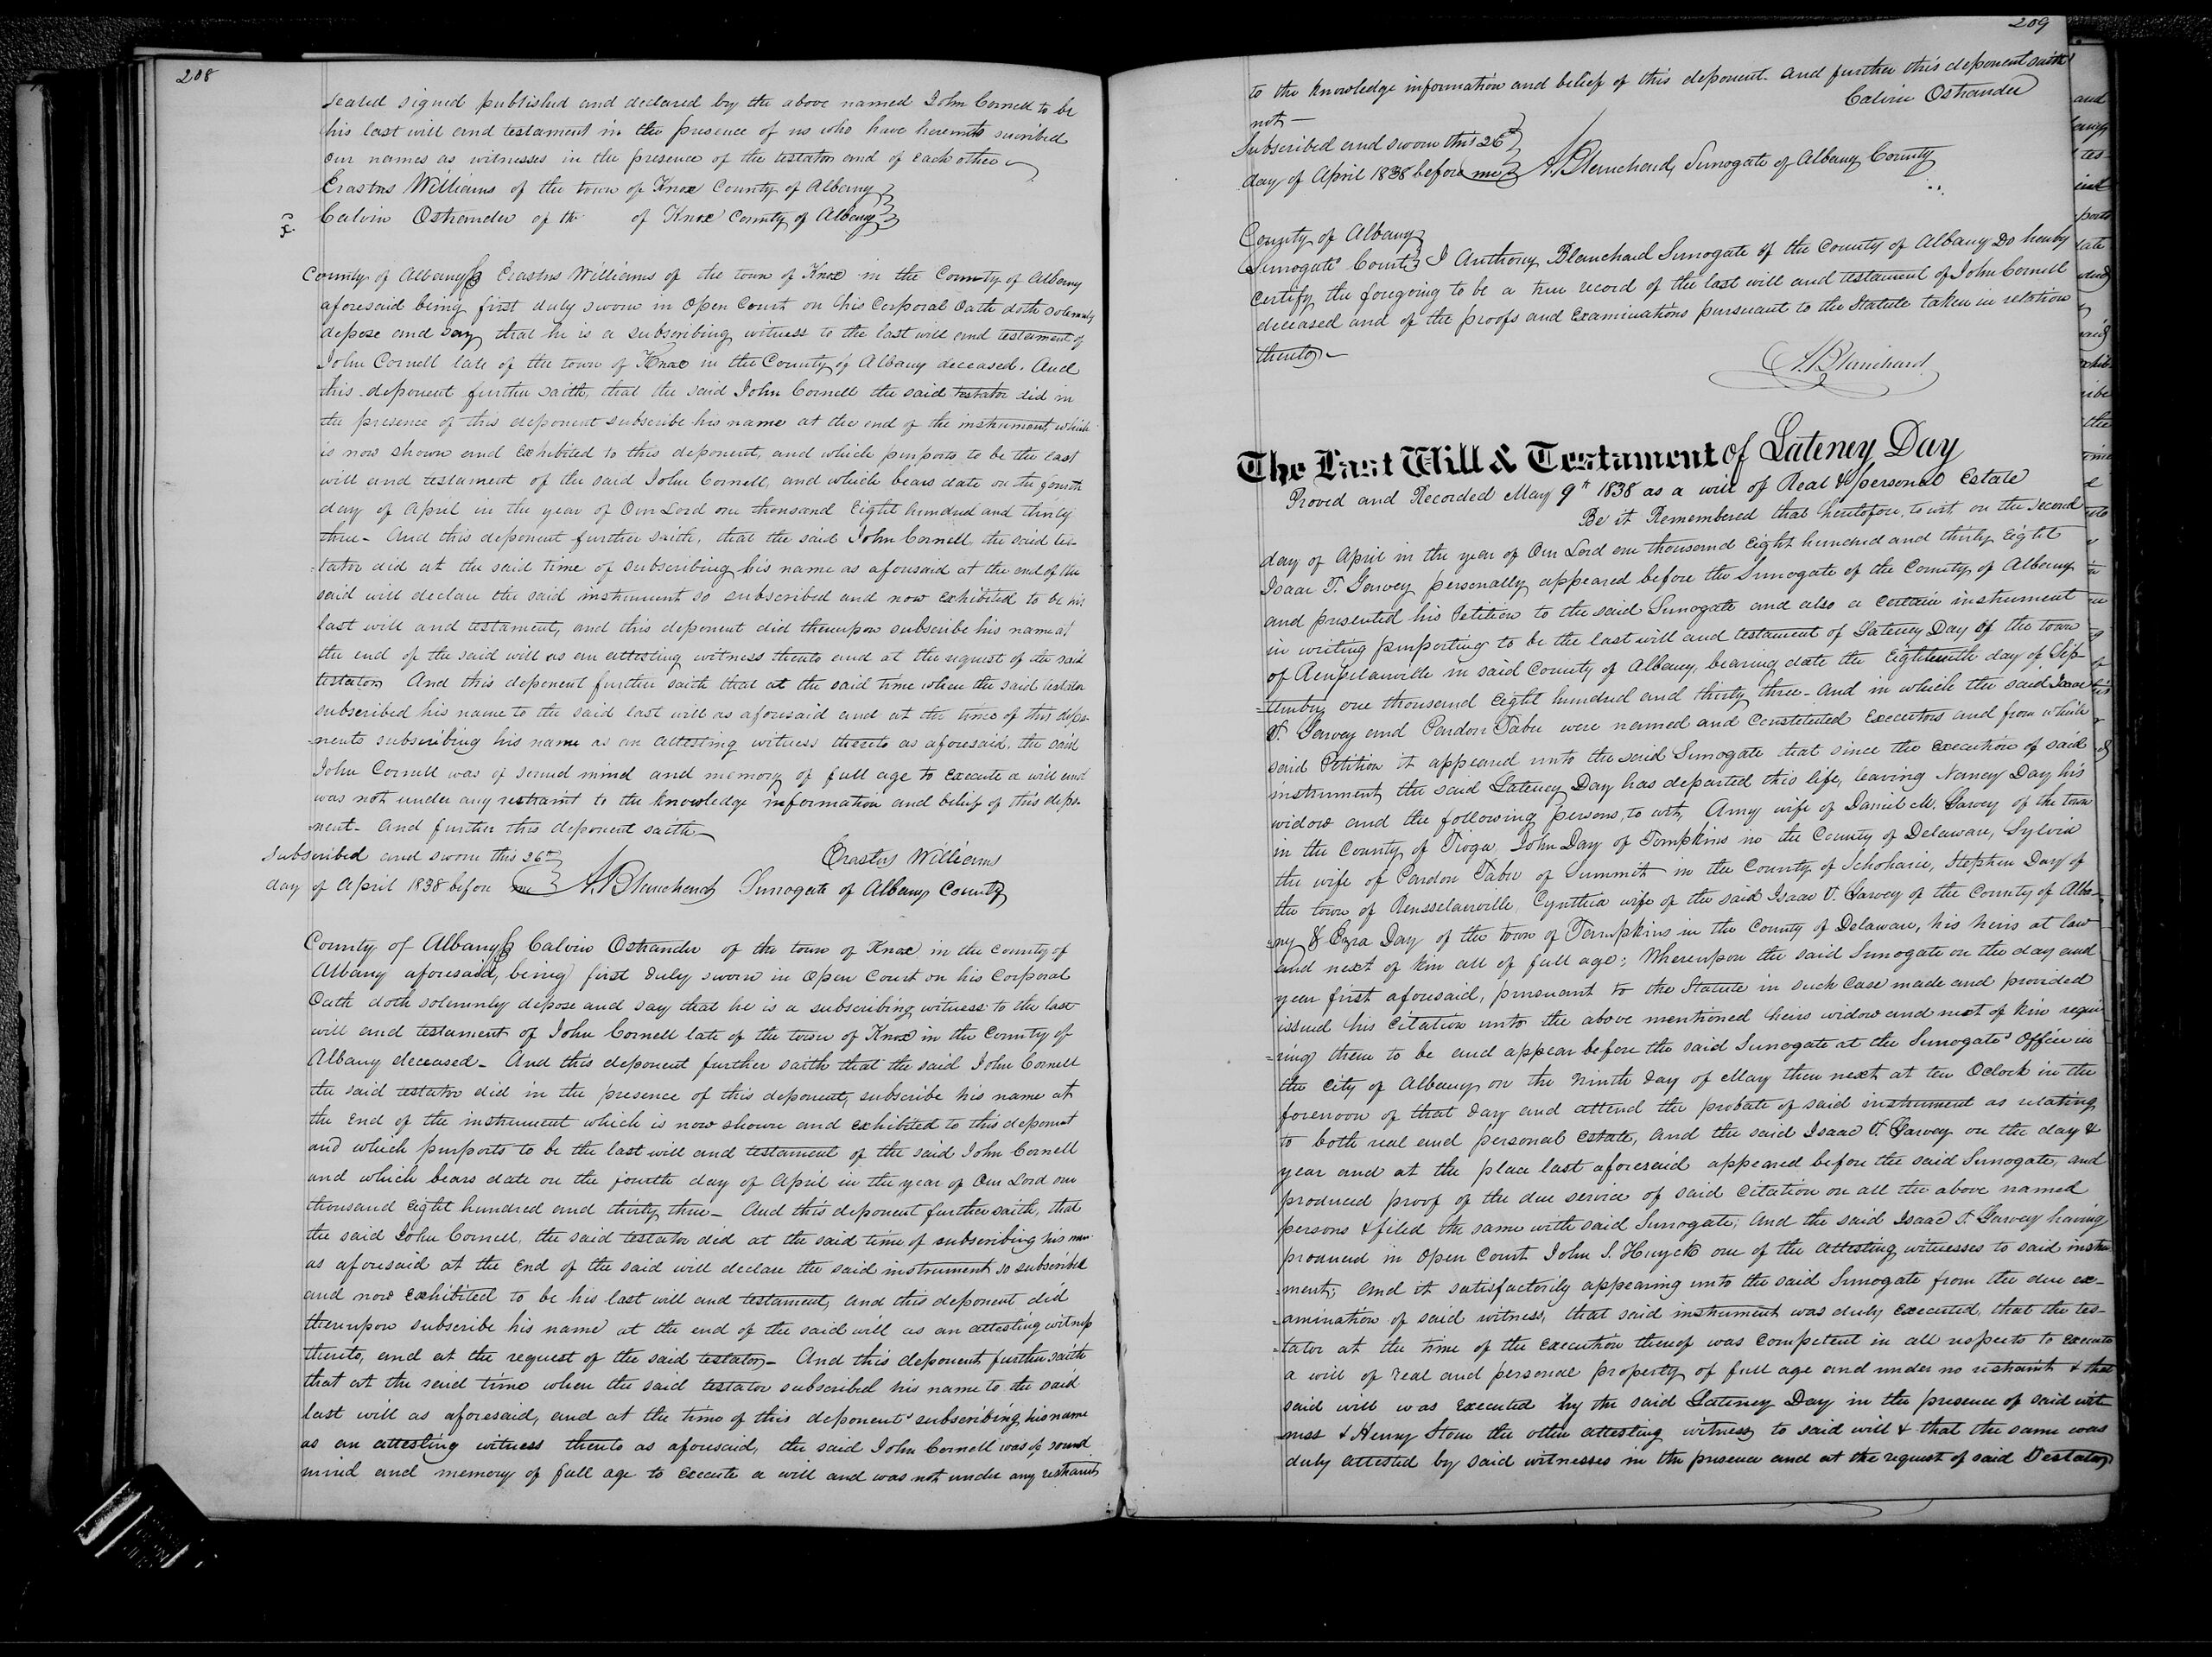 208
sealed signed published and declared by the above named John Cornell to be
his last will and testament in the presence of us who have hereunto scribed
our names as witnesses in the presence of the testator and of each other
Erastus Williams of the town of Knox County of Albany
Calvin Ostrander of th of Knox County of Albany
County of Albany ss Erastus Williams of the town of Knox in the County of Albany
aforesaid being first duly sworn in Open Court on his Corporal Oath doth solemnly
depose and say that he is a subscribing witness to the last will and testament of
John Cornell late of the town of Knox in the County of Albany deceased. And
this deponent further saith, that the said John Cornell the said testator did in
the presence of this deponent subscribe his name at the end of the instrument, which
is now shown and exhibited to this deponent, and which purports to be the last
will and testament of the said John Cornell, and which bears date on the fourth
day of April in the year of Our Lord one thousand Eight hundred and thirty
three - And this deponent further saith, that the said John Cornell the said tes-
-tator did at the said time of subscribing his name as aforesaid at the end of the
said will declare the said instrument so subscribed and now exhibited to be his
last will and testament, and this deponent did thereupon subscribe his name at
the end of the said will as an attesting witness thereto and at the request of the said
testator And this deponent further saith that at the said time when the said testator
subscribed his name to the said last will as aforesaid and at the time of this depo-
-nents subscribing his name as an attesting witness thereto as aforesaid, the said
John Cornell was of sound mind and memory of full age to execute a will and
was not under any restraint to the knowledge information and belief of this depo-
-nent - And further this deponent saith
Subscribed and sworn this 26th Erastus Williams
day of April 1838 before me A. Blanchard Surrogate of Albany County
County of Albany ss Calvin Ostrander of the town of Knox in the County of
Albany aforesaid, being first duly sworn in Open Court on his Corporal
Oath doth solemnly depose and say that he is a subscribing witness to the last
will and testament of John Cornell late of the town of Knox in the County of
Albany deceased - And this deponent further saith that the said John Cornell
the said testator did in the presence of this deponent, subscribe his name at
the End of the instrument which is now shown and exhibited to this deponent
and which purports to be the last will and testament of the said John Cornell
and which bears date on the fourth day of April in the year of Our Lord one
thousand Eight hundred and thirty three - And this deponent further saith, that
the said John Cornell, the said testator did at the said time of subscribing his name
as aforesaid at the End of the said will declare the said instrument so subscribed
and now exhibited to be his last will and testament, and this deponent did
thereupon subscribe his name at the end of the said will as an attesting witness
thereto, and at the request of the said testator - And this deponent further saith
that at the said time when the said testator subscribed his name to the said
last will as aforesaid, and at the time of this deponent's subscribing his name
as an attesting witness thereto as aforesaid, the said John Cornell was of sound
mind and memory of full age to execute a will and was not under any restraint
209
to the knowledge information and belief of this deponent - and further this deponent saith
not - Calvin Ostrander
Subscribed and sworn this 26th
day of April 1838 before me A. Blanchard, Surrogate of Albany County
County of Albany
Surrogate's Court I Anthony Blanchard Surrogate of the County of Albany Do hereby
certify the foregoing to be a true record of the last will and testament of John Cornell
deceased and of the proofs and Examinations pursuant to the Statute taken in relation
thereto -
A. Blanchard
The Last Will & Testament of Lateney Day
Proved and Recorded May 9th 1838 as a will of Real & personal Estate
Be it Remembered that heretofore, to wit, on the second
day of April in the year of Our Lord one thousand Eight hundred and thirty Eight
Isaac T. Garvey personally appeared before the Surrogate of the County of Albany
and presented his Petition to the said Surrogate and also a certain instrument
in writing purporting to be the last will and testament of Lateney Day of the town
of Rensselaerville in said County of Albany, bearing date the Eighteenth day of Sep-
-tember one thousand Eight hundred and thirty three - And in which the said Isaac
T. Garvey and Pardon Taber were named and Constituted Executors and from which
said Petition it appeared unto the said Surrogate that since the Execution of said
instrument, the said Lateney Day has departed this life, leaving Nancy Day his
widow and the following persons, to wit, Amy wife of Daniel M. Garvey of the town
in the County of Tioga, John Day of Tompkins in the County of Delaware, Sylvia
the wife of Pardon Taber of Summit in the County of Schoharie, Stephen Day of
the town of Rensselaerville, Cynthia wife of the said Isaac T. Garvey of the County of Alba-
ny & Ezra Day of the town of Tompkins in the County of Delaware, his heirs at law
and next of kin all of full age; Whereupon the said Surrogate on the day and
year first aforesaid, pursuant to the Statute in such Case made and provided
issued his Citation unto the above mentioned heirs widow and next of kin requi-
-ring them to be and appear before the said Surrogate at the Surrogate's Office in
the City of Albany on the Ninth day of May then next at ten Oclock in the
forenoon of that day and attend the probate of said instrument as relating
to both real and personal Estate, and the said Isaac T. Garvey on the day &
year and at the place last aforesaid appeared before the said Surrogate, and
produced proof of the due service of said Citation on all the above named
persons & filed the same with said Surrogate; And the said Isaac T. Garvey having
produced in Open Court John S. Huyck one of the attesting witnesses to said instru-
-ment; And it satisfactorily appearing unto the said Surrogate from the due ex-
-amination of said witness, that said instrument was duly executed, that the tes-
-tator at the time of the execution thereof was Competent in all respects to execute
a will of real and personal property of full age and under no restraint & that
said will was executed by the said Lateney Day in the presence of said wit-
-ness & Henry Stone the other attesting witness to said will & that the same was
duly attested by said witnesses in the presence and at the request of said Testator